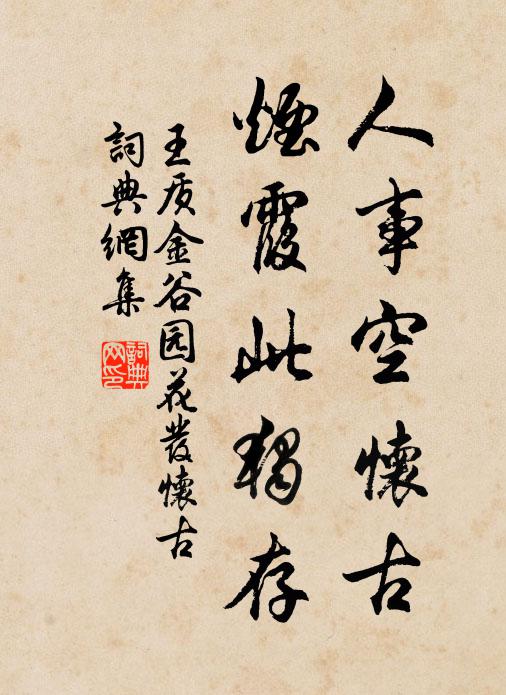 人事空懷古
煙霞此獨存
王质金谷园花發懷古
詞典網集
詞典網印